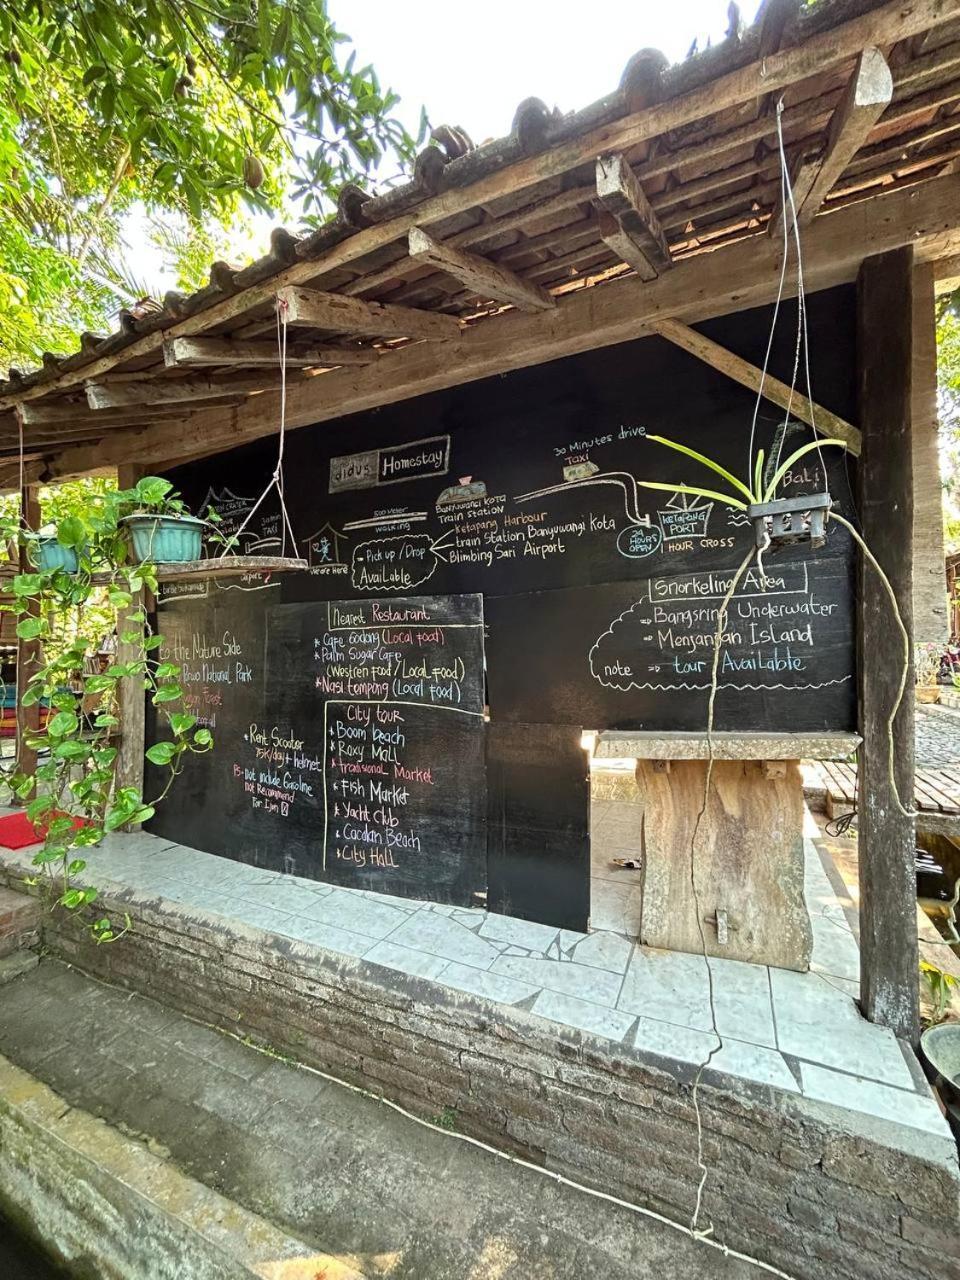 didus Homestay
30 Minutes drive
Taxi
Bali
500 Meter
walking
BANYUWANGI KOTA
Train Station
KETAPANG
PORT
24
HOURS
OPEN
1 HOUR CROSS
30 min
TAXI
We are Here
Pick up / Drop
Available
Ketapang Harbour
train Station Banyuwangi Kota
Blimbing Sari Airport
airport
Snorkeling Area
Bangsring Underwater
Menjangan Island
note tour Available
Nearest Restaurant
* Cafe Godong (Local food)
* Palm Sugar Cafe
(Westren food / Local food)
* Nasi tempong (Local food)
to the Nature Side
Purwo National Park
Forest
City tour
* Boom beach
* Roxy Mall
* Tradisional Market
* Fish Market
* Yacht club
* Cacalan Beach
* City Hall
* Rent Scooter
75K/day + helmet
PS. not include Gasoline
not Recommend
For Ijen